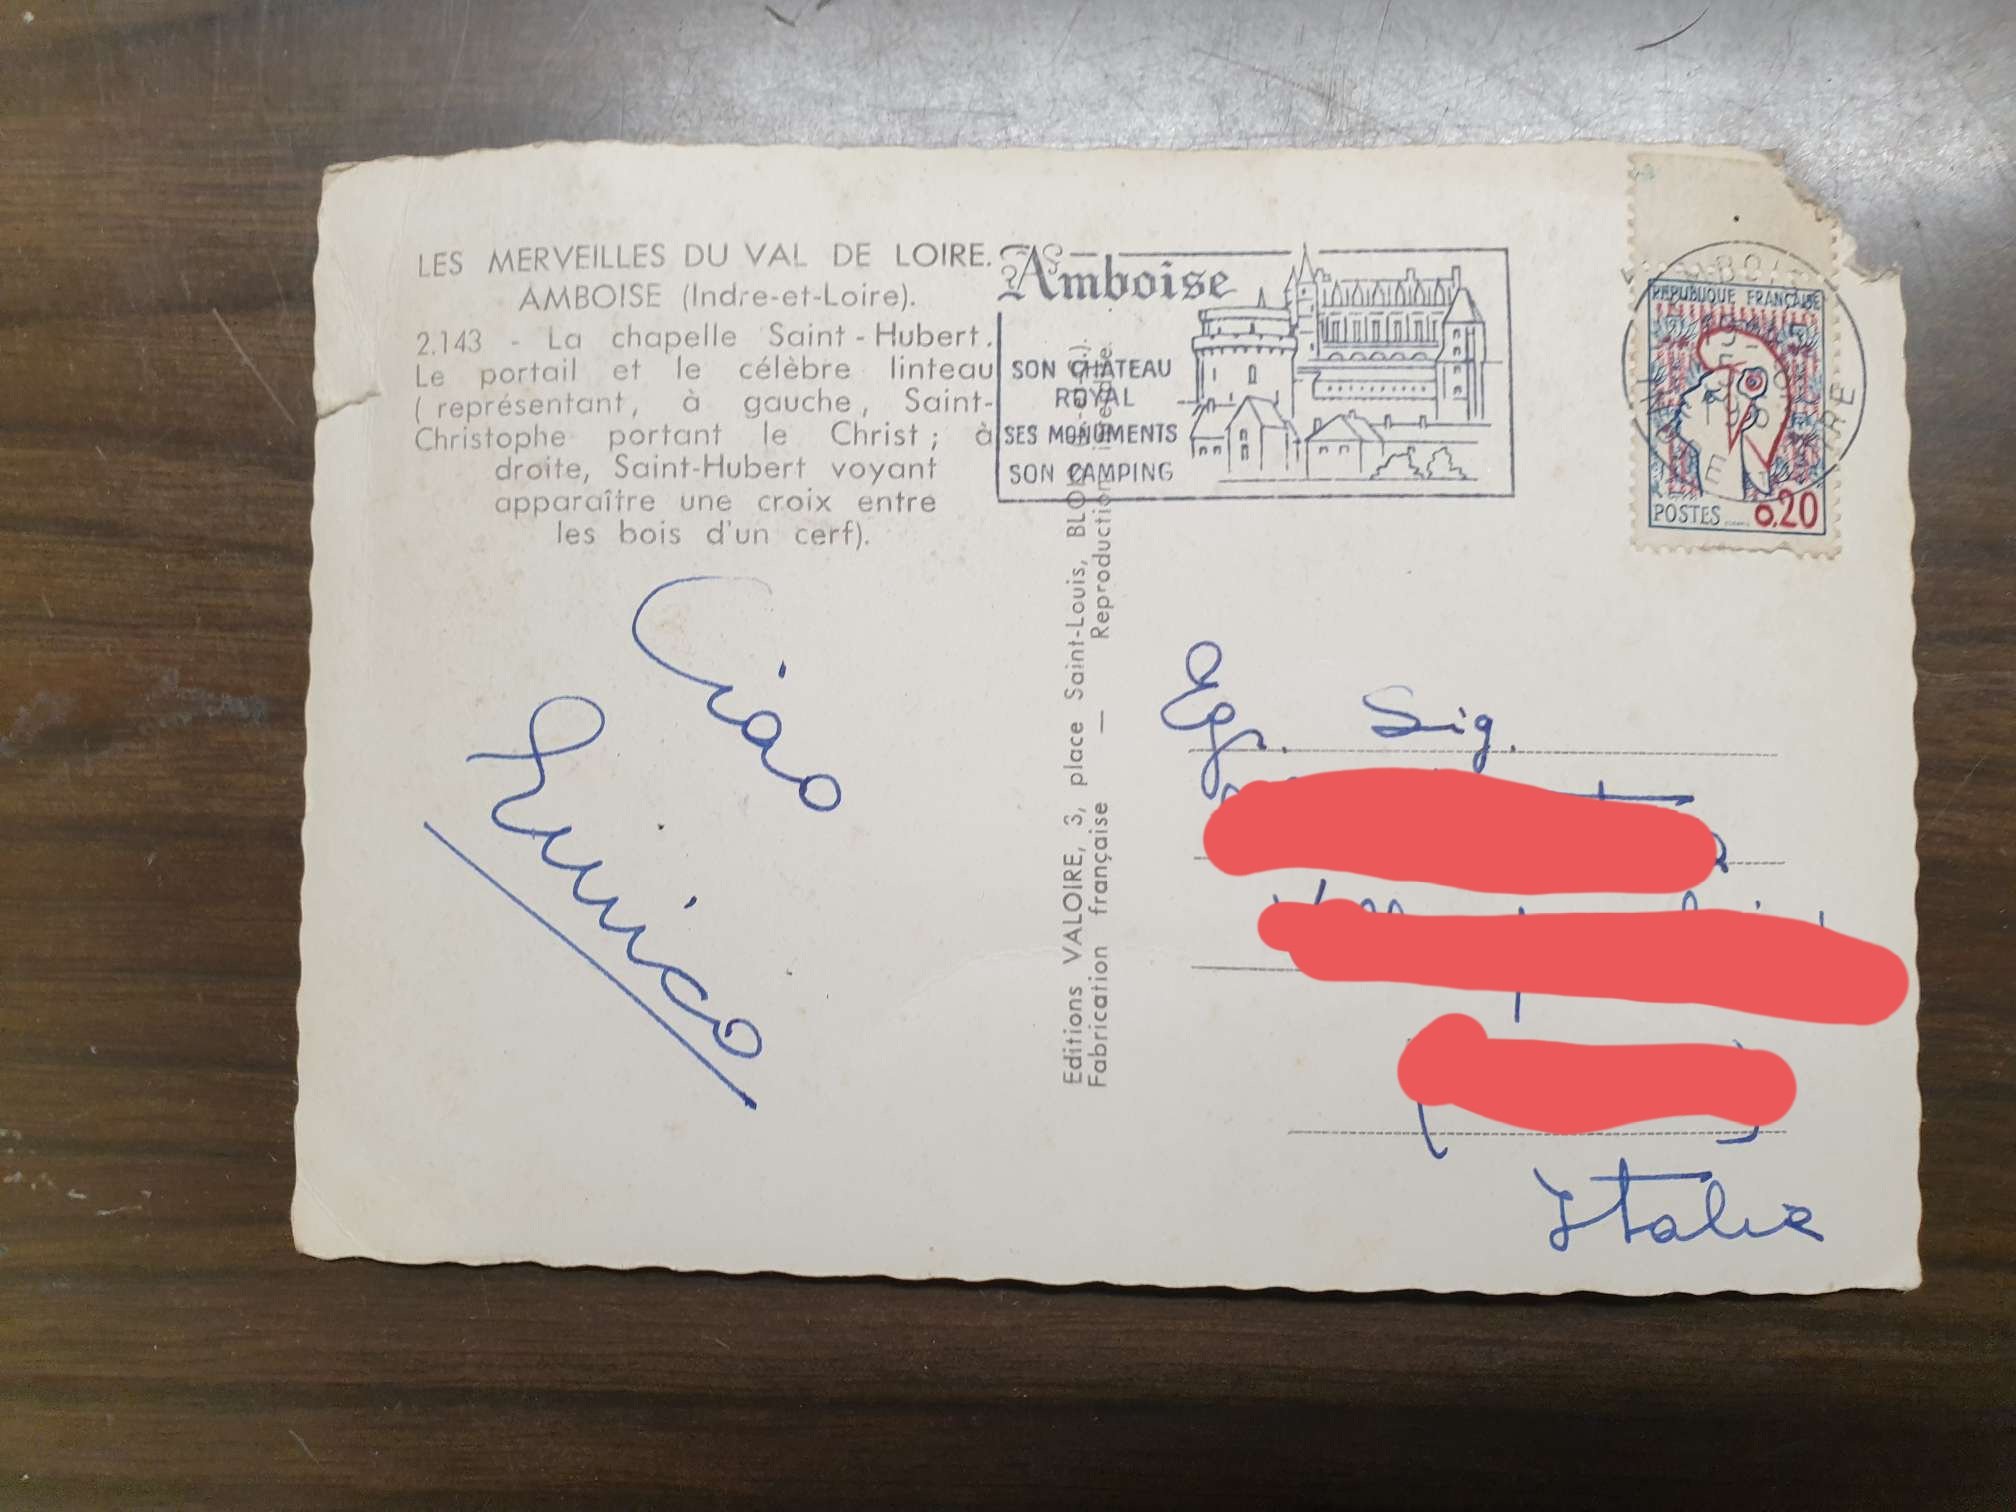 LES MERVEILLES DU VAL DE LOIRE.
AMBOISE (Indre-et-Loire).
2.143 - La chapelle Saint-Hubert.
Le portail et le célèbre linteau
(représentant, à gauche, Saint-
Christophe portant le Christ; à
droite, Saint-Hubert voyant
apparaître une croix entre
les bois d'un cerf).
Amboise
SON CHÂTEAU
ROYAL
SES MONUMENTS
SON CAMPING
REPUBLIQUE FRANÇAISE
POSTES 0,20
Ciao
Editions VALOIRE, 3, place Saint-Louis,
Fabrication française — Reproduction
Egr. Sig.
Italia